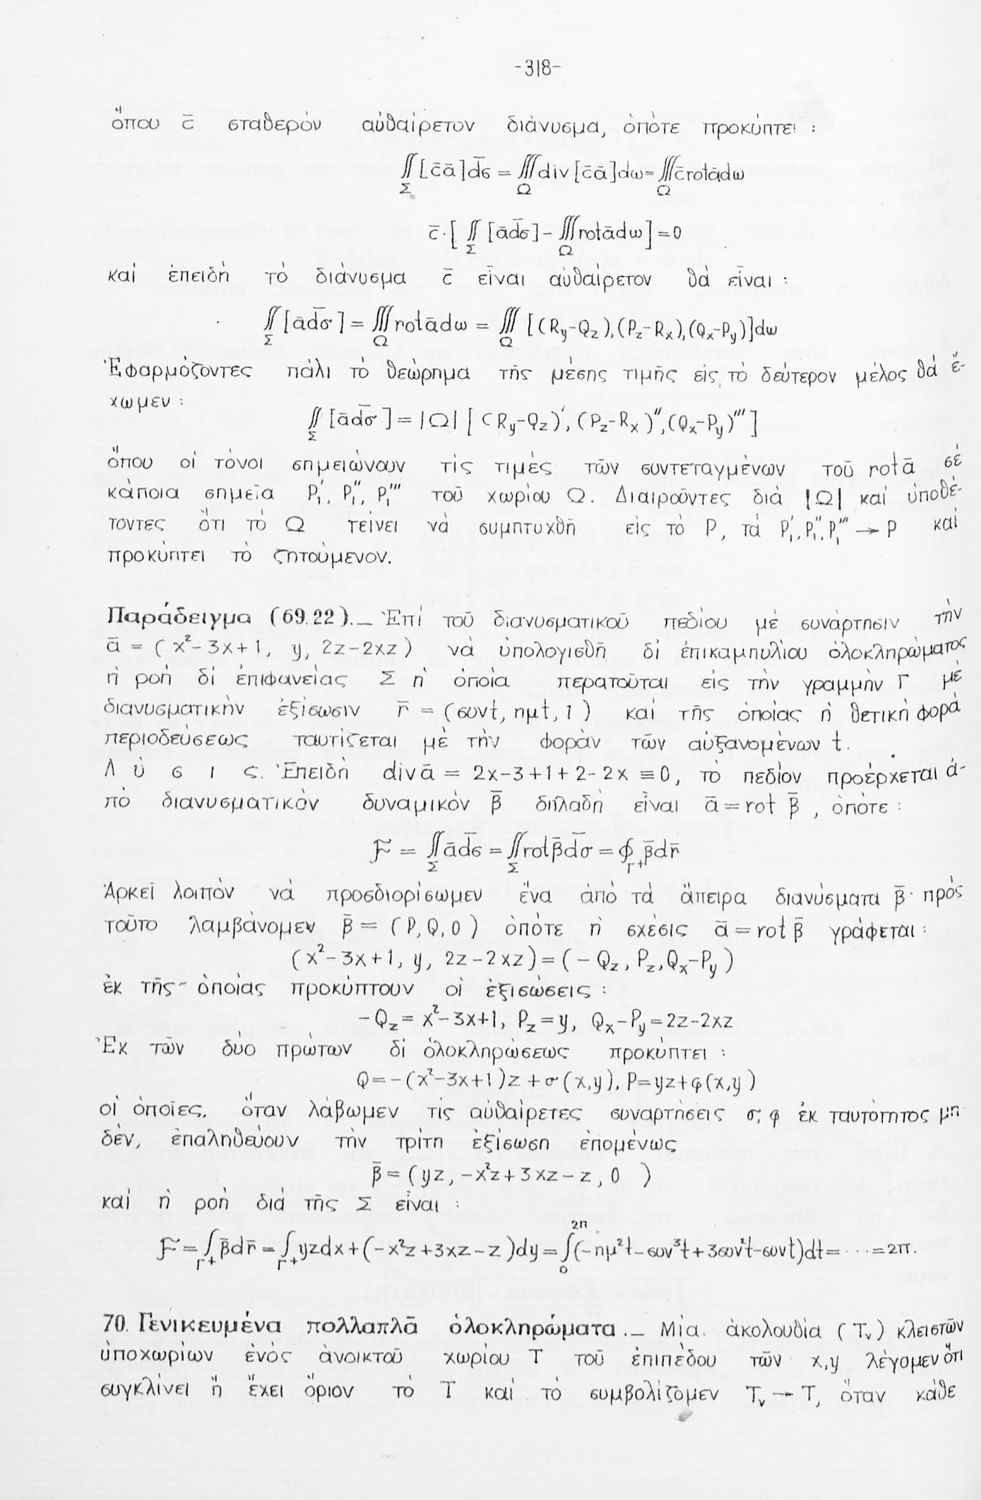 -318-
ὅπου c̄ σταθερὸν αὐθαίρετον διάνυσμα, ὁπότε προκύπτει :
∬_Σ [c̄ā]d̄σ = ∭_Ω div [c̄ā]dω = ∭_Ω c̄rotādω
c̄·[ ∬_Σ [ād̄σ] - ∭_Ω rotādω ] = 0
καὶ ἐπειδὴ τὸ διάνυσμα c̄ εἶναι αὐθαίρετον θὰ εἶναι :
∬_Σ [ād̄σ] = ∭_Ω rotādω = ∭_Ω [(R_y-Q_z),(P_z-R_x),(Q_x-P_y)]dω
Ἐφαρμόζοντες πάλι τὸ θεώρημα τῆς μέσης τιμῆς εἰς τὸ δεύτερον μέλος θὰ ἔ-
χωμεν :
∬_Σ [ād̄σ] = |Ω| [ (R_y-Q_z)′, (P_z-R_x)″, (Q_x-P_y)‴ ]
ὅπου οἱ τόνοι σημειώνουν τὶς τιμὲς τῶν συντεταγμένων τοῦ rotā σὲ
κάποια σημεῖα P₁′, P₁″, P₁‴ τοῦ χωρίου Ω. Διαιροῦντες διὰ |Ω| καὶ ὑποθέ-
τοντες ὅτι τὸ Ω τείνει νὰ συμπτυχθῆ εἰς τὸ P, τὰ P₁′, P₁″, P₁‴ → P καὶ
προκύπτει τὸ ζητούμενον.
Παράδειγμα (69.22)._ Ἐπὶ τοῦ διανυσματικοῦ πεδίου μὲ συνάρτησιν τὴν
ā = ( x²-3x+1, y, 2z-2xz ) νὰ ὑπολογισθῆ δι' ἐπικαμπυλίου ὁλοκληρώματος
ἡ ροὴ δι' ἐπιφανείας Σ ἡ ὁποία περατοῦται εἰς τὴν γραμμὴν Γ μὲ
διανυσματικὴν ἐξίσωσιν r̄ = (συνt, ημt, 1 ) καὶ τῆς ὁποίας ἡ θετικὴ φορὰ
περιοδεύσεως ταυτίζεται μὲ τὴν φορὰν τῶν αὐξανομένων t.
Λ ύ σ ι ς. Ἐπειδὴ divā = 2x-3+1+2-2x ≡ 0, τὸ πεδίον προέρχεται ἀ-
πὸ διανυσματικὸν δυναμικὸν β̄ δηλαδὴ εἶναι ā = rot β̄ , ὁπότε :
ℱ = ∬_Σ ād̄σ = ∬_Σ rotβ̄d̄σ = ∮_Γ⁺ β̄dr̄
Ἀρκεῖ λοιπὸν νὰ προσδιορίσωμεν ἕνα ἀπὸ τὰ ἄπειρα διανύσματα β̄· πρὸς
τοῦτο λαμβάνομεν β̄ = ( P, Q, 0 ) ὁπότε ἡ σχέσις ā = rot β̄ γράφεται :
( x²-3x+1, y, 2z-2xz ) = ( -Q_z, P_z, Q_x-P_y )
ἐκ τῆς ὁποίας προκύπτουν οἱ ἐξισώσεις :
-Q_z = x²-3x+1, P_z = y, Q_x-P_y = 2z-2xz
Ἐκ τῶν δύο πρώτων δι' ὁλοκληρώσεως προκύπτει :
Q = -(x²-3x+1)z + σ(x,y), P = yz+φ(x,y)
οἱ ὁποῖες, ὅταν λάβωμεν τὶς αὐθαίρετες συναρτήσεις σ, φ ἐκ ταυτότητος μη-
δέν, ἐπαληθεύουν τὴν τρίτη ἐξίσωση ἑπομένως
β̄ = ( yz, -x²z+3xz-z, 0 )
καὶ ἡ ροὴ διὰ τῆς Σ εἶναι :
ℱ = ∫_Γ⁺ β̄dr̄ = ∫_Γ⁺ yzdx+(-x²z+3xz-z)dy = ∫₀^2π (-ημ²t-συν³t+3συν²t-συνt)dt = ··· = 2π.
70. Γενικευμένα πολλαπλᾶ ὁλοκληρώματα._ Μία ἀκολουθία (T_ν) κλειστῶν
ὑποχωρίων ἑνὸς ἀνοικτοῦ χωρίου T τοῦ ἐπιπέδου τῶν x,y λέγομεν ὅτι
συγκλίνει ἢ ἔχει ὅριον τὸ T καὶ τὸ συμβολίζομεν T_ν → T, ὅταν κάθε